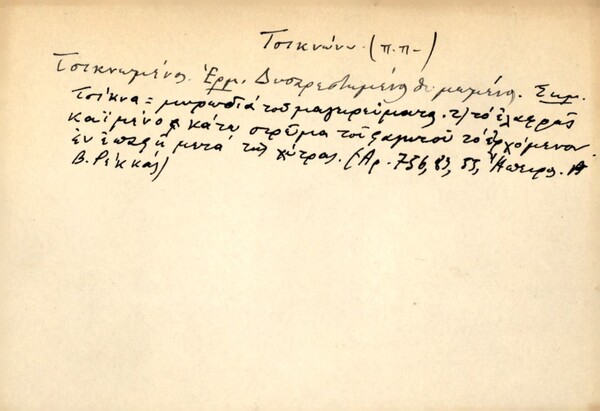 Τσικνώνω (π.π.)
Τσικνωμένος. Ἑρμ. Δυσαρεστημένος θυμωμένος. Σημ.
Τσίκνα = μυρωδιὰ τοῦ μαγειρεύματος. τὸ ἐλαφρῶς
καϊμένο κάτω στρῶμα τοῦ φαγητοῦ τὸ ἐρχόμενον
ἐν ἐπαφῇ μετὰ τῆς χύτρας. (Ἀρ. 756, 83, 55, Ἤπειρος.
Β. Ρέκκας)